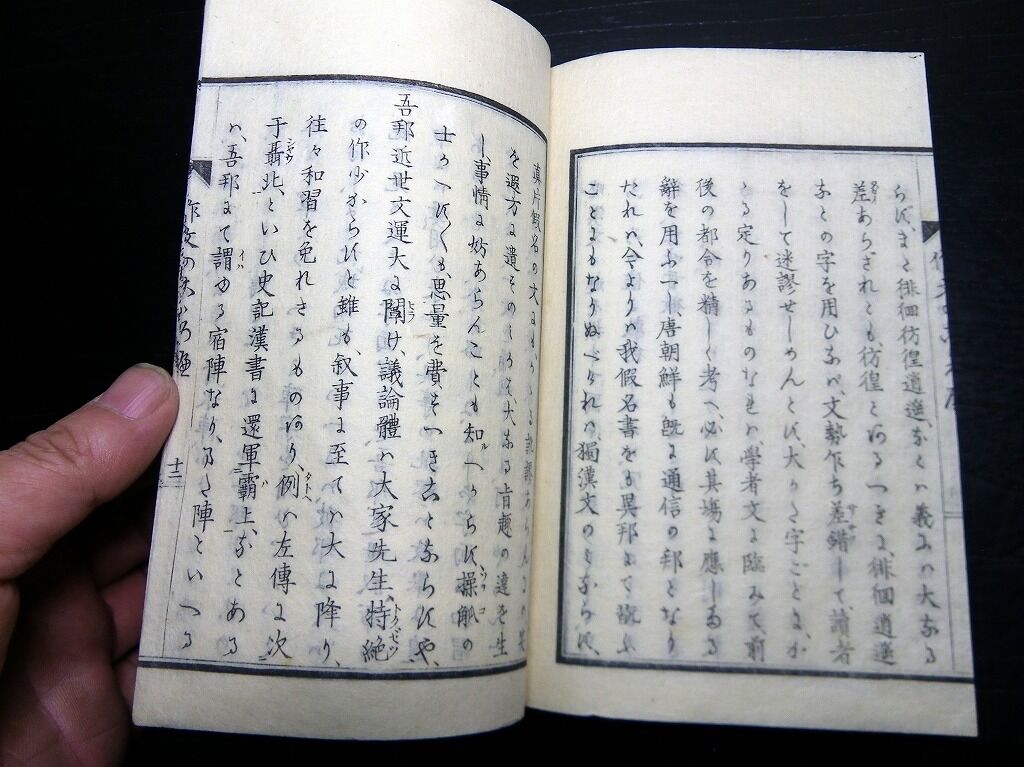 らば、まヽ徘徊彷徨逍遙、などハ義ニハ大なる
差あらざれとも、彷徨とあるべきに、徘徊逍遙
などの字を用ひなバ、文勢乍ち差錯して、讀者
をして迷謬せしめんとす、大かた字ごとに、か
ヽる定りあるものなれハ、學者文に臨みて前
後の都合を精しく考へ、必す其場に應しある
辭を用ふへし、唐朝鮮も既に通信の邦となり
たれハ、今よりハ我假名書をも異邦にて翫ふ
ことにもなりぬべけれハ、獨漢文のミならす、
真片假名の文にも、かヽる
を遐方に遺そのミならす大なる旨趣の違を生
し、事情に妨あらんことも知ルへからす、操觚の
士のへすく\も、思量を費すへき古とならすや、
吾邦近世文運大に闡け、議論體ハ大家先生、特絶
の作少からすと雖も、叙事に至てハ大に降り、
往々和習を免れさるものあり、例ハ左傳に次
于聶北、といひ史記漢書に還軍霸上、などある
ハ、吾邦にて謂ゆる宿陣なり、るを陣といへる
十二